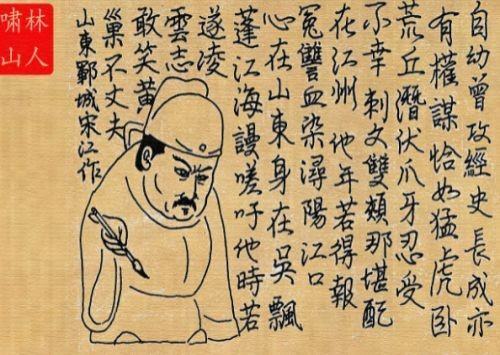 自幼曾攻經史長成亦
有權謀恰如猛虎卧
荒丘潛伏爪牙忍受
不幸刺文雙頰那堪配
在江州他年若得報
冤讐血染潯陽江口
心在山東身在吳飄
蓬江海謾嗟吁他時若
遂凌
雲志
敢笑黃
巢不丈夫
山東鄆城宋江作
嘯林
山人